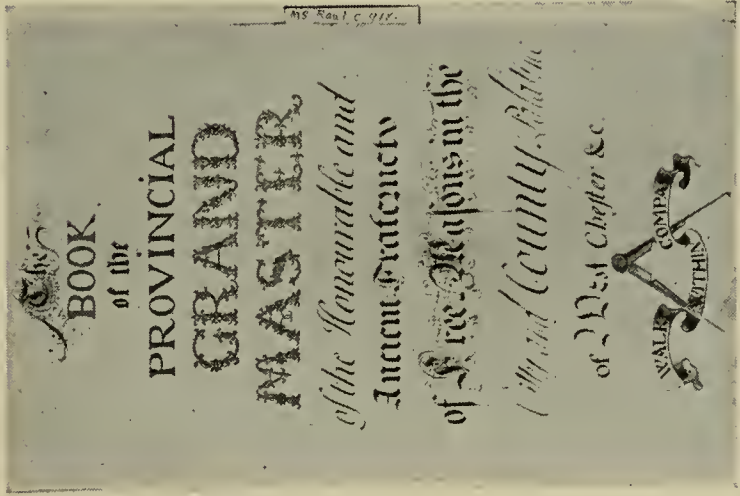 MS Rawl C 918.
The
BOOK
of the
PROVINCIAL
GRAND
MASTER
of the Honourable and
Ancient Fraternety
of Free-Masons in the
City and County
of West Chester &c.
WALK WITHIN COMPA